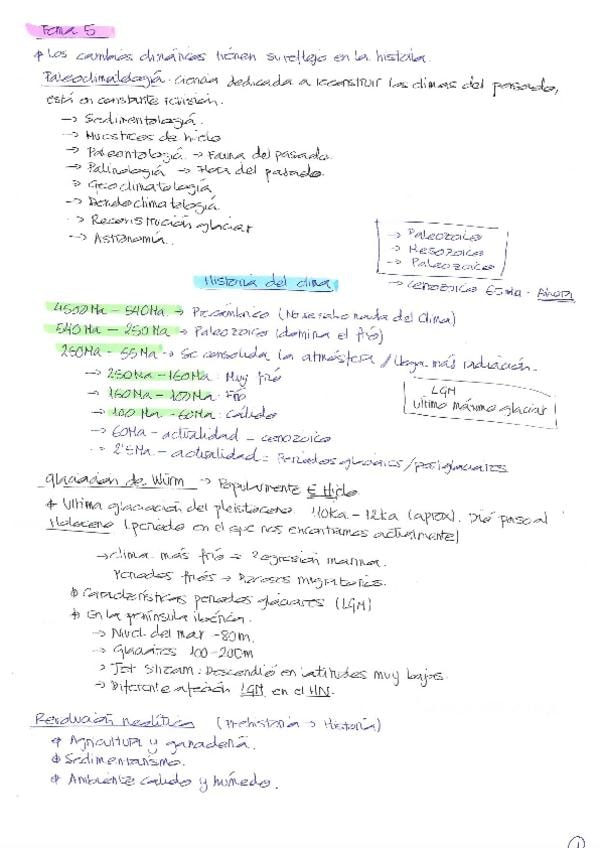 Tema 5
* Los cambios climáticos tienen su reflejo en la historia.
Paleoclimatología: ciencia dedicada a reconstruir los climas del pasado,
está en constante revisión.
→ Sedimentología.
→ Muestras de hielo
→ Paleontología → Fauna del pasado.
→ Palinología → Flora del pasado.
→ Geoclimatología
→ Dendoclimatología.
→ Reconstrucción glaciar
→ Astronomía.
→ Paleozoico
→ Mesozoico
→ Paleozoico
→ Cenozoico 65Ma -
Historia del clima
4500Ma - 540Ma → Precámbrico (No se sabe nada del clima)
540Ma - 250Ma → Paleozoico (domina el frío)
250Ma - 55Ma → Se consolida la atmósfera / llega más radiación.
→ 250Ma - 160Ma: Muy frío
→ 160Ma - 100Ma: Frío
→ 100Ma - 60Ma: Cálido
→ 60Ma - actualidad - Cenozoico
→ 2'5Ma - actualidad = Periodos glaciares / periglaciares
LGM
Ultimo máximo glaciar
Glaciación de Würm → Popularmente E. Hielo
* Ultima glaciación del pleistoceno. 110Ka - 12Ka (aprox). Dió paso al
Holoceno (periodo en el que nos encontramos actualmente)
→ clima más frío = Regresión marina.
Periodos fríos → Procesos migratorios.
* Características periodos glaciares (LGM)
* En la península ibérica.
→ Nivel del mar -80m.
→ Glaciares 100-200m
→ Jet Stream: Descendió en latitudes muy bajas.
→ Diferente afección LGM en el HN.
Revolución neolítica (Prehistoria → Historia)
* Agricultura y ganadería.
* Sedimentarismo.
* Ambiente cálido y húmedo.
1